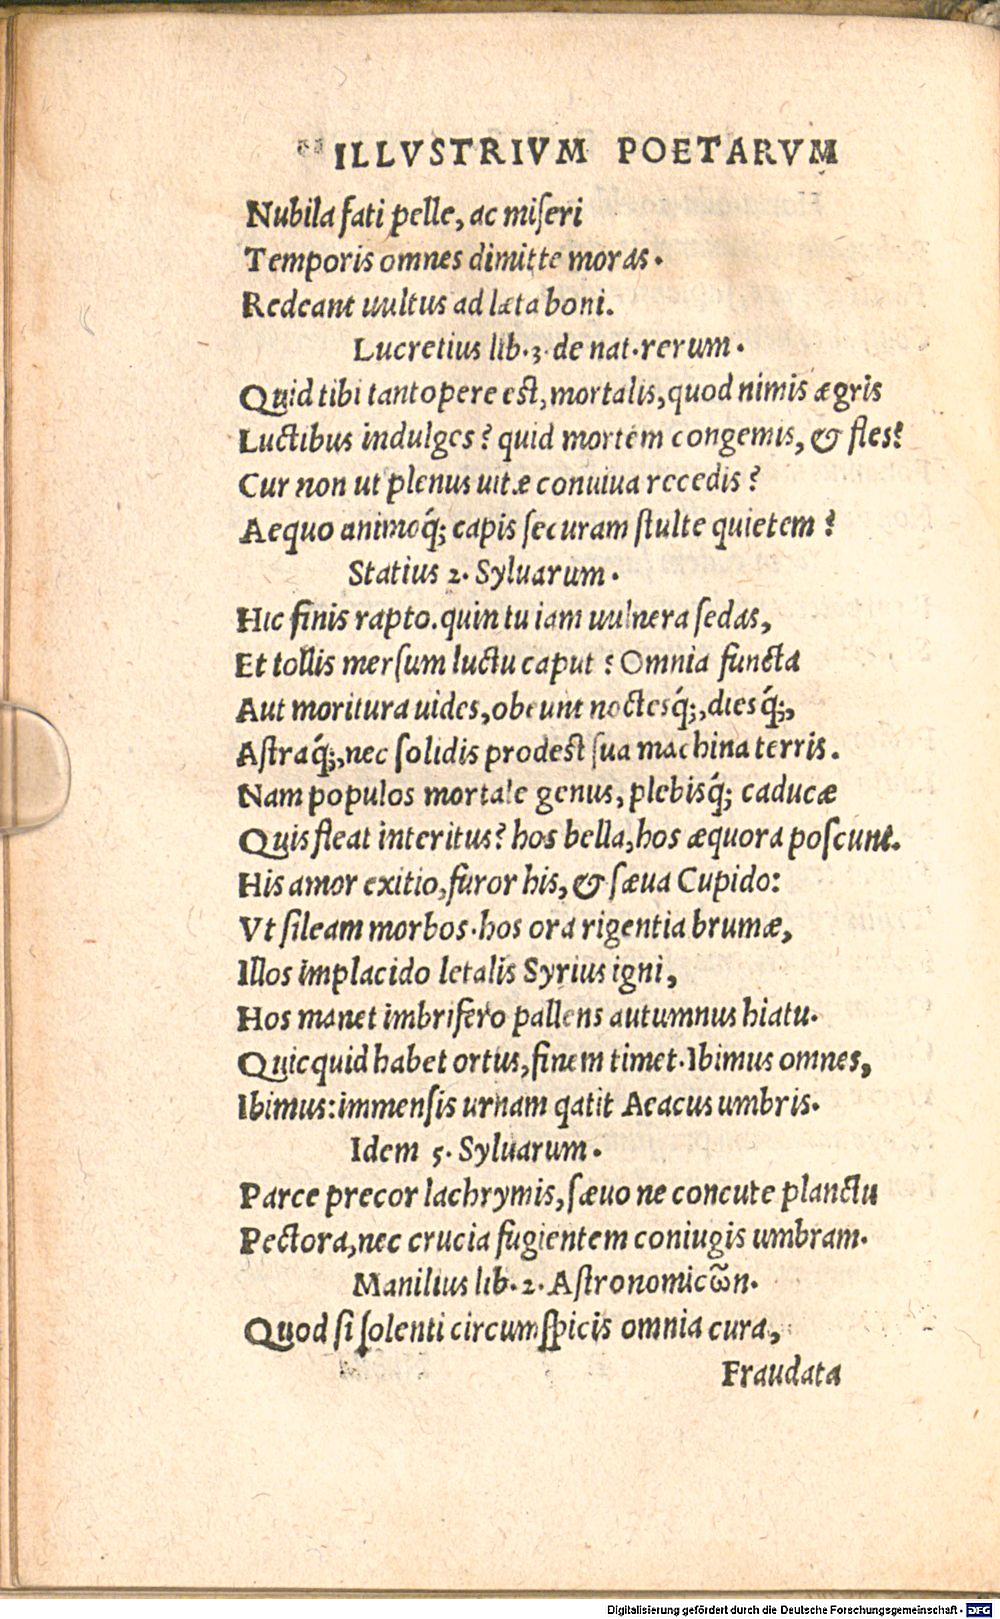 ILLVSTRIVM POETARVM
Nubila fati pelle, ac miseri
Temporis omnes dimitte moras.
Redeant uultus ad læta boni.
Lucretius lib. 3. de nat. rerum.
Quid tibi tantopere est, mortalis, quod nimis ægris
Luctibus indulges? quid mortem congemis, & fles?
Cur non ut plenus uitæ conuiua recedis?
Aequo animoq́; capis securam stulte quietem?
Statius 2. Syluarum.
Hic finis rapto. quin tu iam uulnera sedas,
Et tollis mersum luctu caput? Omnia functa
Aut moritura uides, obeunt noctesq́;, diesq́;,
Astraq́;, nec solidis prodest sua machina terris.
Nam populos mortale genus, plebisq́; caducæ
Quis fleat interitus? hos bella, hos æquora poscunt.
His amor exitio, furor his, & sæua Cupido:
Vt sileam morbos. hos ora rigentia brumæ,
Illos implacido letalis Syrius igni,
Hos manet imbrifero pallens autumnus hiatu.
Quicquid habet ortus, finem timet. Ibimus omnes,
Ibimus: immensis urnam qatit Aeacus umbris.
Idem 5. Syluarum.
Parce precor lachrymis, sæuo ne concute planctu
Pectora, nec crucia fugientem coniugis umbram.
Manilius lib. 2. Astronomicῶn.
Quod si solenti circumspicis omnia cura,
Fraudata
Digitalisierung gefördert durch die Deutsche Forschungsgemeinschaft - DFG